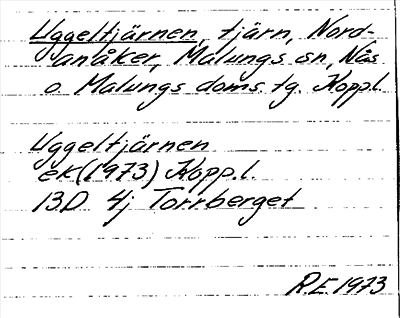 Uggeltjärnen, tjärn, Nord-
anåker, Malungs sn, Nås
o. Malungs doms.tg. Kopp.l.
Uggeltjärnen
ek(1973) Kopp.l.
13D 4j Torrberget
R.E. 1973